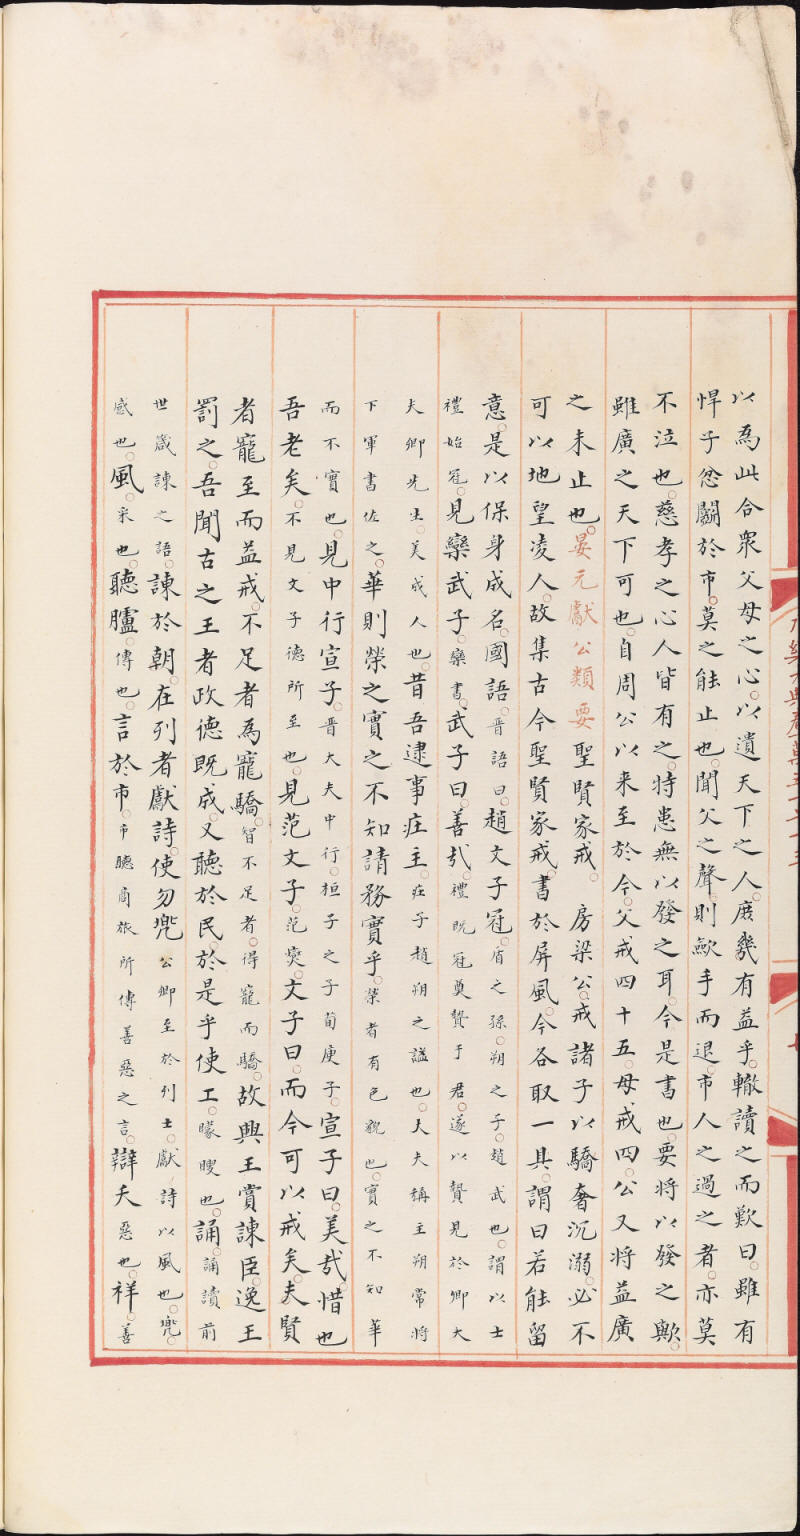 以爲此合衆父母之心。以遺天下之人。庶幾有益乎。轍讀之而歎曰。雖有
悍子忿鬬於市。莫之能止也。聞父之聲。則歛手而退。市人之過之者。亦莫
不泣也。慈孝之心人皆有之。特患無以發之耳。今是書也。要將以發之歟。
雖廣之天下可也。自周公以来至於今。父戒四十五。母戒四。公又將益廣
之未止也。晏元獻公類要聖賢家戒。房梁公。戒諸子以驕奢沉溺。必不
可以地望凌人。故集古今聖賢家戒。書於屏風。令各取一具。謂曰若能留
意。是以保身成名。國語。晋語曰。趙文子冠。盾之孫。朔之子。趙武也。謂以士
禮始冠。見欒武子。欒書。武子曰。善㦲。禮既冠奠贄于君。遂以贄見於卿大
夫卿先生。美成人也。昔吾逮事莊主。莊子趙朔之謚也。大夫稱主朔常將
下軍書佐之。華則榮之實之不知請務實乎。榮者有色貌也。實之不知華
而不實也。見中行宣子。晋大夫中行。桓子之子荀庚子。宣子曰。美㦲。惜也
吾老矣。不見文子德所至也。見范文子。范燮。文子曰。而今可以戒矣。夫賢
者寵至而益戒。不足者為寵驕。智不足者。得寵而驕。故興王賞諫臣。逸王
罰之。吾聞古之王者政德既成。又聽於民。於是乎使工。矇瞍也。誦。誦讀前
世箴諫之語。諫於朝。在列者獻詩。使勿兜。公卿至於列士。獻詩以風也。兜。
惑也。風。采也。聽臚。傳也。言於市。市聽商旅所傳善惡之言。辯夭惡也。祥。善